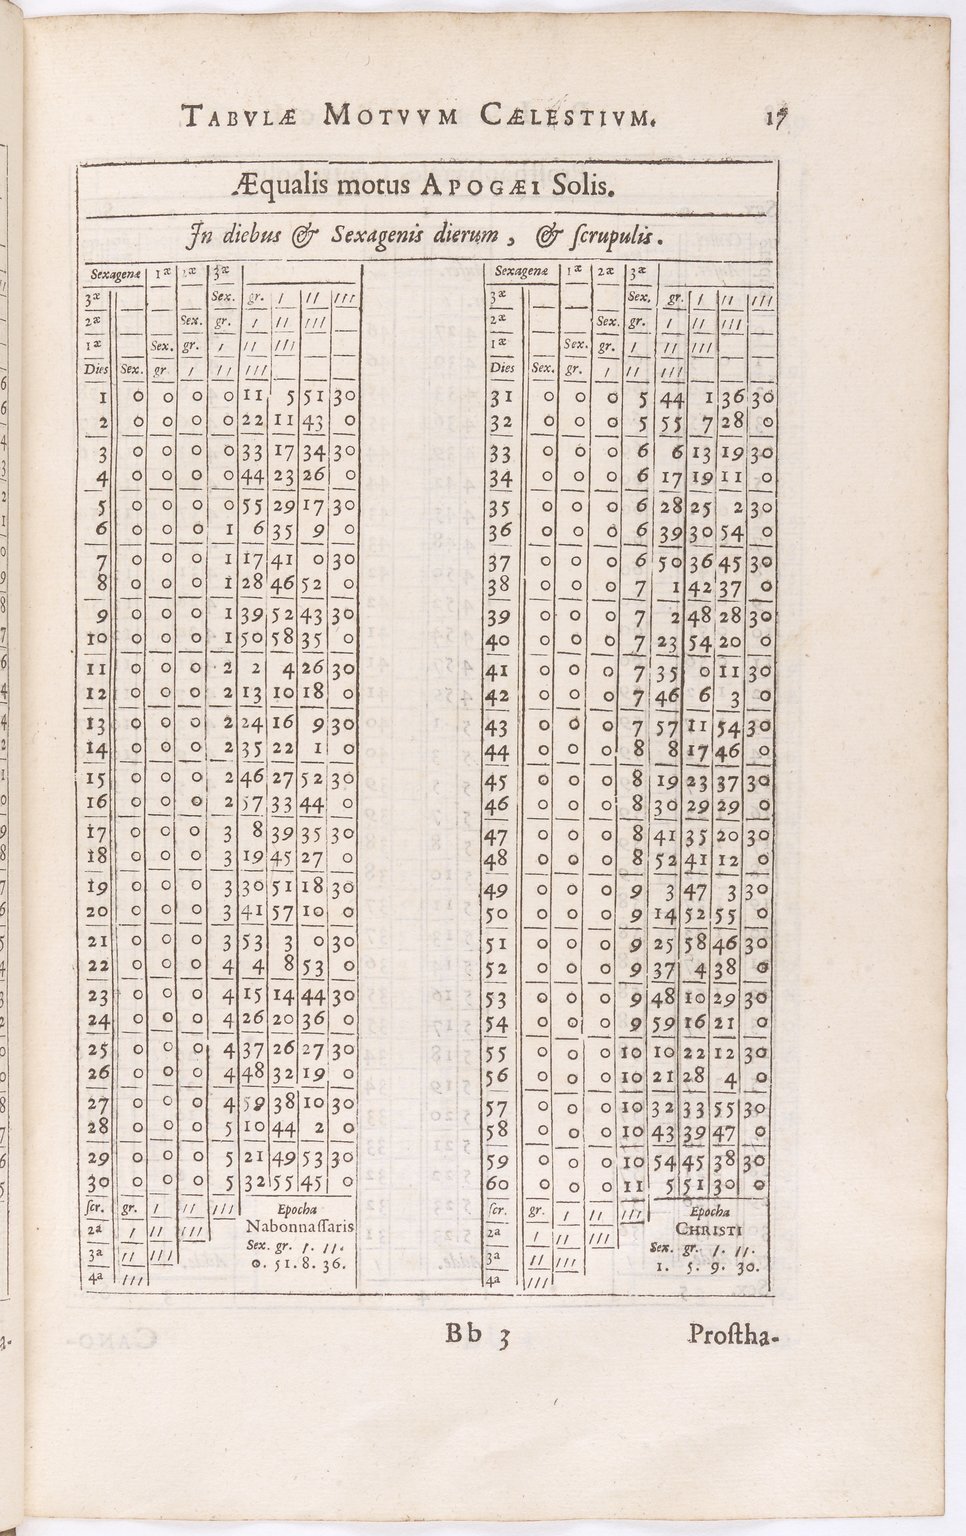 TABVLÆ MOTVVM CÆLESTIVM. 17
Æqualis motus APOGÆI Solis.
In diebus & Sexagenis dierum, & scrupulis.
Sexagenæ 1æ 2æ 3æ Sexagenæ 1æ 2æ 3æ
3æ Sex. gr. / // /// 3æ Sex. gr. / // ///
2æ Sex. gr. / // /// 2æ Sex. gr. / // ///
1æ Sex. gr. / // /// 1æ Sex. gr. / // ///
Dies Sex. gr / // /// Dies Sex. gr. / // ///
1 0 0 0 0 11 5 51 30 31 0 0 0 5 44 1 36 30
2 0 0 0 0 22 11 43 0 32 0 0 0 5 55 7 28 0
3 0 0 0 0 33 17 34 30 33 0 0 0 6 6 13 19 30
4 0 0 0 0 44 23 26 0 34 0 0 0 6 17 19 11 0
5 0 0 0 0 55 29 17 30 35 0 0 0 6 28 25 2 30
6 0 0 0 1 6 35 9 0 36 0 0 0 6 39 30 54 0
7 0 0 0 1 17 41 0 30 37 0 0 0 6 50 36 45 30
8 0 0 0 1 28 46 52 0 38 0 0 0 7 1 42 37 0
9 0 0 0 1 39 52 43 30 39 0 0 0 7 2 48 28 30
10 0 0 0 1 50 58 35 0 40 0 0 0 7 23 54 20 0
11 0 0 0 2 2 4 26 30 41 0 0 0 7 35 0 11 30
12 0 0 0 2 13 10 18 0 42 0 0 0 7 46 6 3 0
13 0 0 0 2 24 16 9 30 43 0 0 0 7 57 11 54 30
14 0 0 0 2 35 22 1 0 44 0 0 0 8 8 17 46 0
15 0 0 0 2 46 27 52 30 45 0 0 0 8 19 23 37 30
16 0 0 0 2 57 33 44 0 46 0 0 0 8 30 29 29 0
17 0 0 0 3 8 39 35 30 47 0 0 0 8 41 35 20 30
18 0 0 0 3 19 45 27 0 48 0 0 0 8 52 41 12 0
19 0 0 0 3 30 51 18 30 49 0 0 0 9 3 47 3 30
20 0 0 0 3 41 57 10 0 50 0 0 0 9 14 52 55 0
21 0 0 0 3 53 3 0 30 51 0 0 0 9 25 58 46 30
22 0 0 0 4 4 8 53 0 52 0 0 0 9 37 4 38 0
23 0 0 0 4 15 14 44 30 53 0 0 0 9 48 10 29 30
24 0 0 0 4 26 20 36 0 54 0 0 0 9 59 16 21 0
25 0 0 0 4 37 26 27 30 55 0 0 0 10 10 22 12 30
26 0 0 0 4 48 32 19 0 56 0 0 0 10 21 28 4 0
27 0 0 0 4 59 38 10 30 57 0 0 0 10 32 33 55 30
28 0 0 0 5 10 44 2 0 58 0 0 0 10 43 39 47 0
29 0 0 0 5 21 49 53 30 59 0 0 0 10 54 45 38 30
30 0 0 0 5 32 55 45 0 60 0 0 0 11 5 51 30 0
scr. gr. / // /// Epocha scr. gr. / // /// Epocha
2a / // /// Nabonnassaris 2a / // /// CHRISTI
3a // /// Sex. gr. /. //. 3a // /// Sex. gr. /. //.
4a /// 0. 51. 8. 36. 4a /// 1. 5. 9. 30.
Bb 3 Prostha-